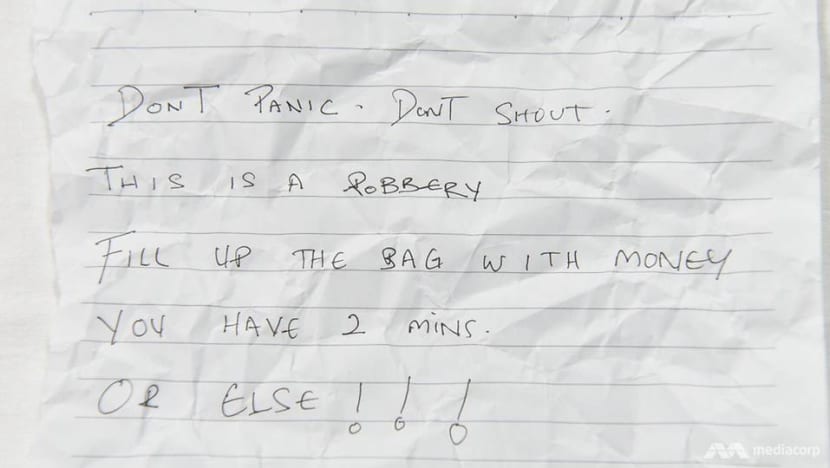 DONT PANIC. DONT SHOUT.
THIS IS A ROBBERY
FILL UP THE BAG WITH MONEY
YOU HAVE 2 MINS.
OR ELSE !!!
mediacorp